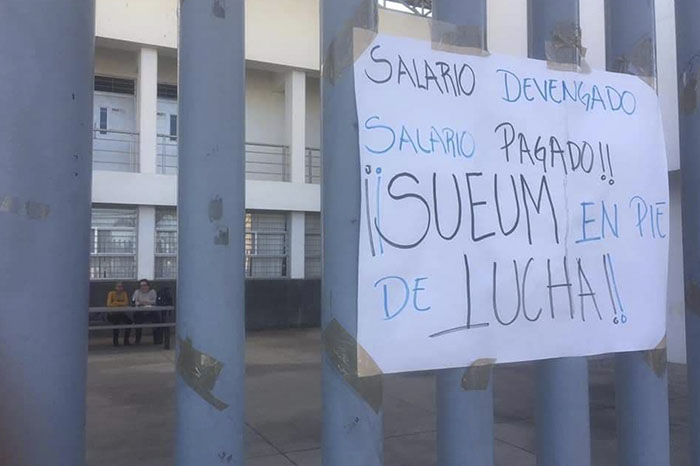 SALARIO DEVENGADO
SALARIO PAGADO!!
¡¡SUEUM EN PIE
DE LUCHA!!